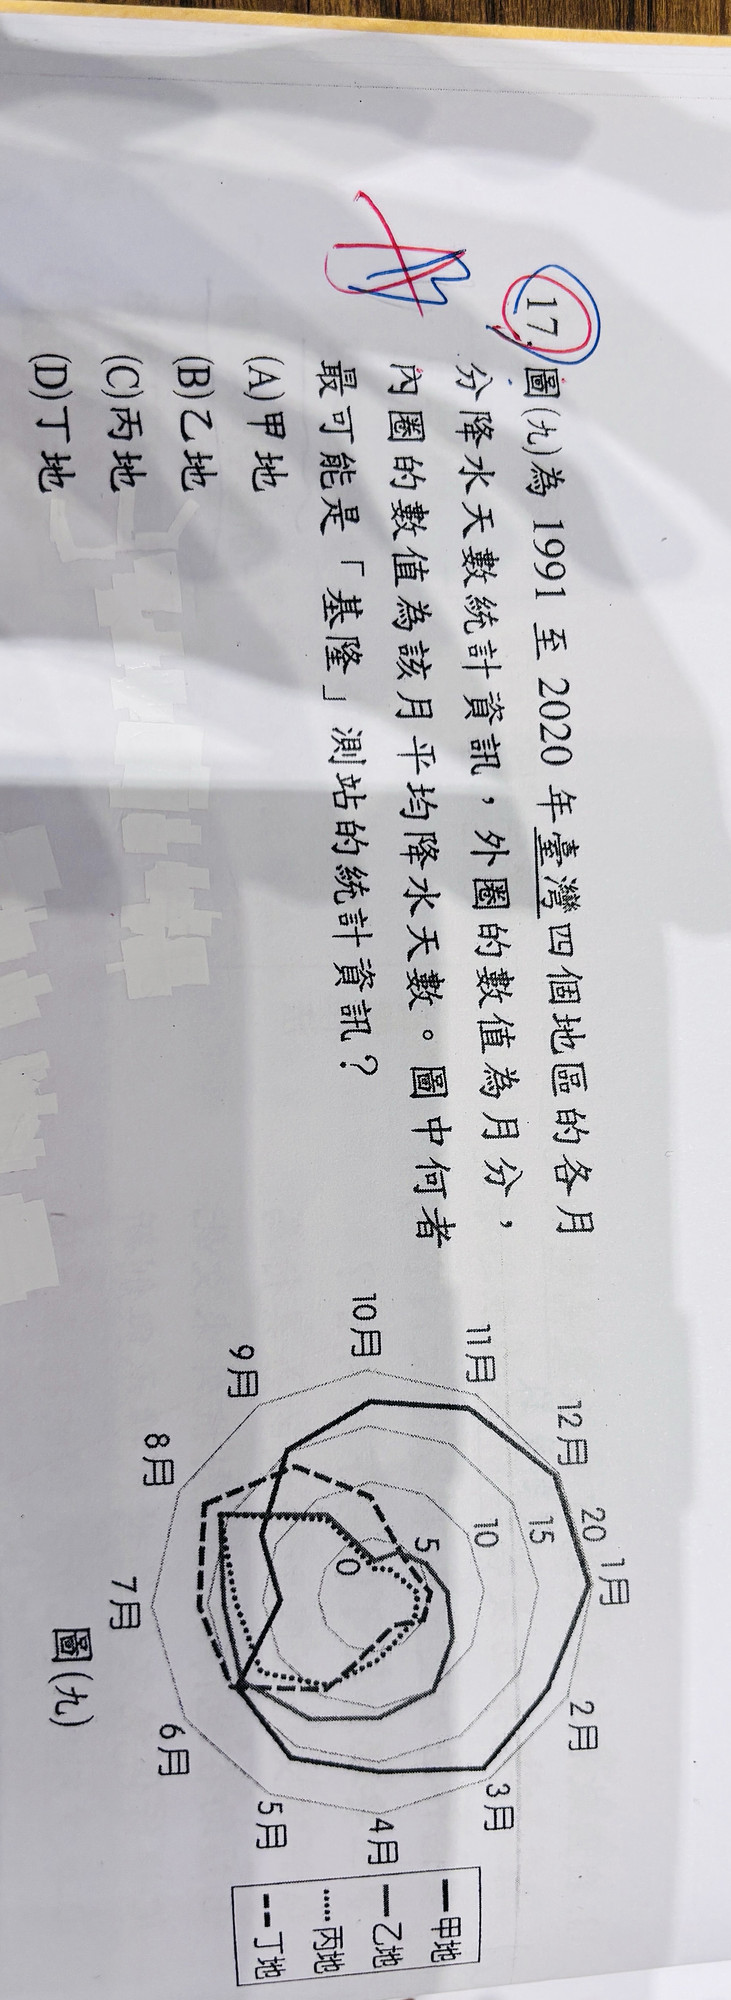 17. 圖(九)為 1991 至 2020 年臺灣四個地區的各月
分降水天數統計資訊，外圈的數值為月分，
內圈的數值為該月平均降水天數。圖中何者
最可能是「基隆」測站的統計資訊？
(A)甲地
(B)乙地
(C)丙地
(D)丁地
1月
2月
3月
4月
5月
6月
7月
8月
9月
10月
11月
12月
20
15
10
5
0
甲地
乙地
丙地
丁地
圖(九)